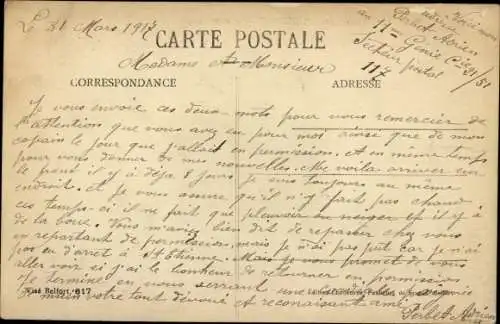 Le 21 Mars 1917
Voici mon
adresse
Perbet Adrien
au 11e Génie Cie 21/51
Secteur postal
117
CARTE POSTALE
Madame et Monsieur
CORRESPONDANCE
ADRESSE
Je vous envoie ces deux mots pour vous remercier de
l'attention que vous avez eu pour moi ainsi que de mon
copain le jour que j'allait en permission. Et en même temps
pour vous donner de mes nouvelles. Me voila arriver sur
le front il y a déja 8 jours je suis toujours au même
endroit. Et je vous assure qu'il n'y fait pas chaud
ces temps-ci il ne fait que pleuvoir ou neiger et il y a
de la boue. Vous m'aviez bien dit de repasser chez vous
en repartant de permission mais je n'ai pas put car je n'ai
pas eu d'arret à St Etienne. Mais je vous promet de vous
aller voir si j'ai le bonheur de retourner en permission
Je termine en vous serrant une
la main votre tant dévoué et reconaisant ami
Perbet Adrien
Visé Belfort, 617